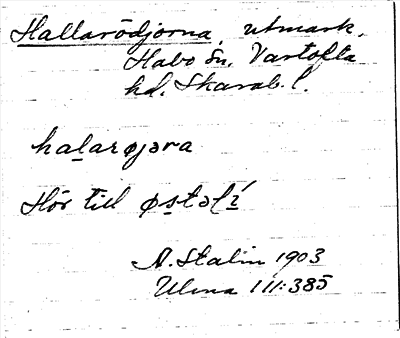 Hallarödjorna, utmark.
Habo sn. Vartofta
hd. Skarab. l.
halarøjɵra
Hör till østəlí
A. Stalin 1903
Ulma 111:385